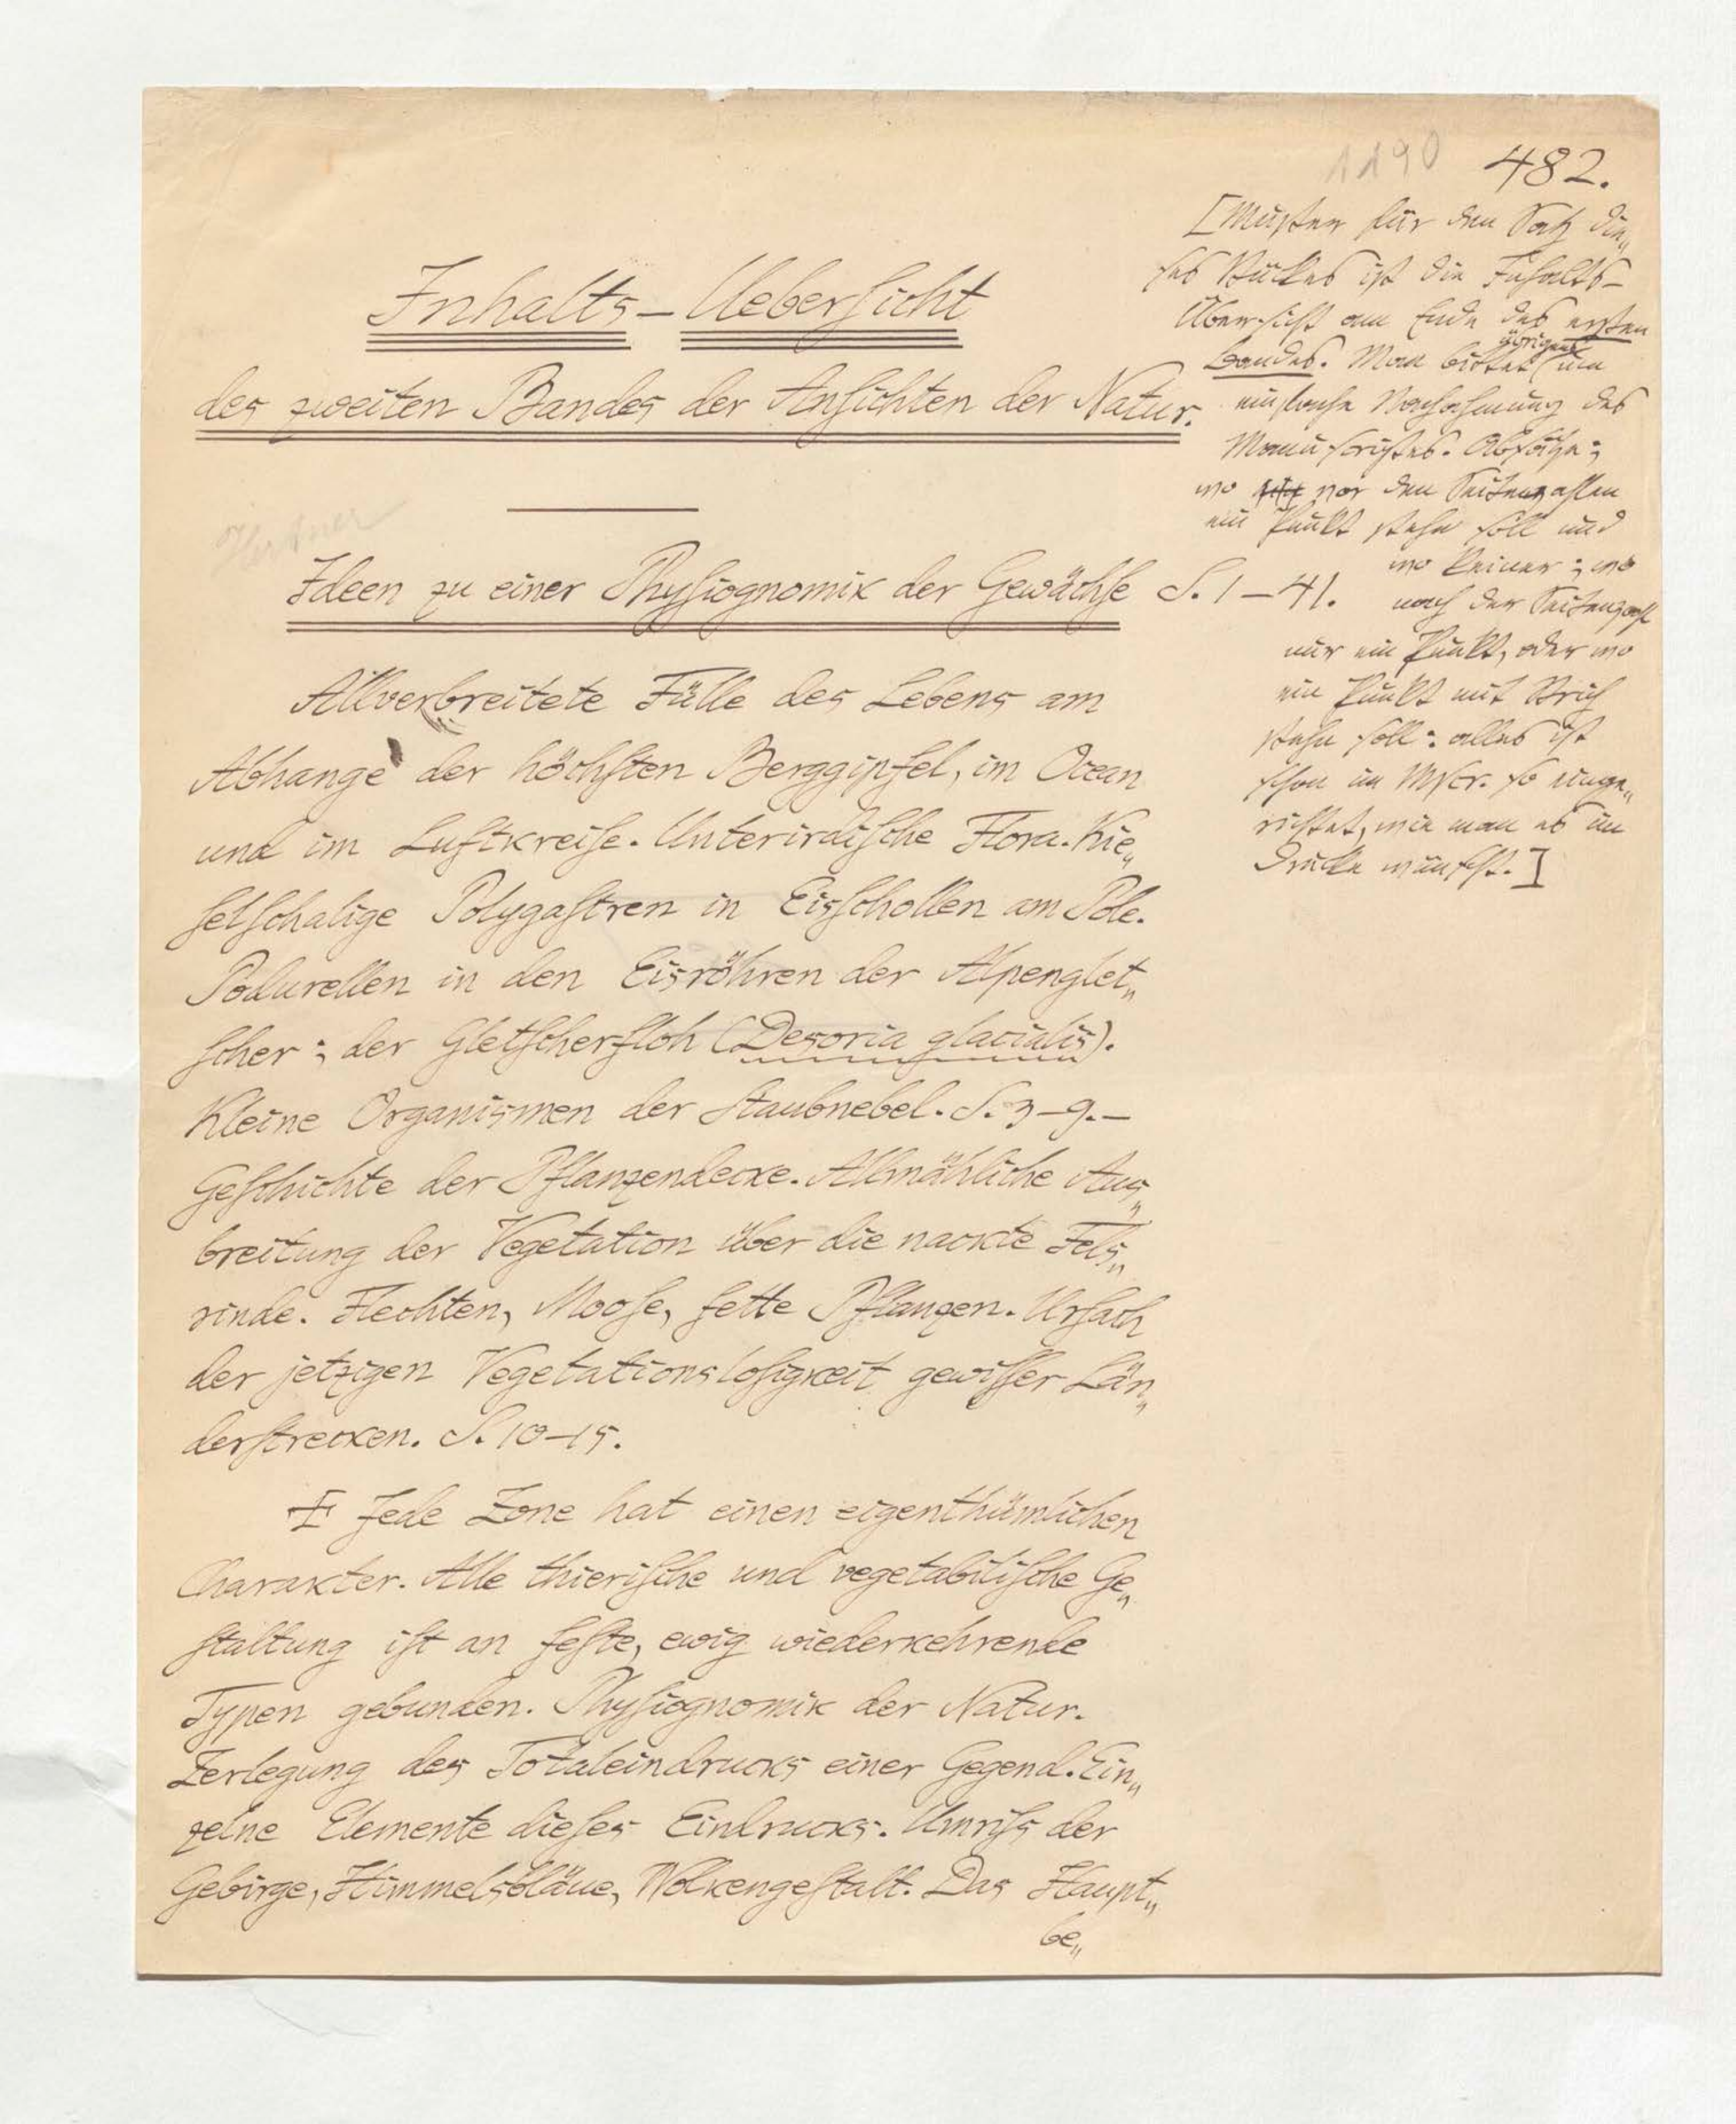 1190 482.
[Muster für den Satz die„
ses Stückes ist die Inhalts-
Übersicht am Ende des ersten
Bandes. Man bittet übrigens um
einfache Nachahmung des
Manuscriptes. Absätze;
wo vor den Seitenzahlen
ein Punkt stehn soll und
wo keiner; wo
nach der Seitenzahl
nur ein Punkt, oder wo
ein Punkt mit Strich
stehn soll: alles ist
schon im Mscr. so einge„
richtet, wie man es im
Drucke wünscht.]
Inhalts-Ueberſicht
des zweiten Bandes der Anſichten der Natur.
Ideen zu einer Phyſiognomik der Gewächſe S. 1–41.
Allverbreitete Fülle des Lebens am
Abhange der höchſten Berggipfel, im Ocean
und im Luftkreiſe. Unterirdiſche Flora. Kie„
ſelſchalige Polygaſtren in Eisſchollen am Pole.
Podurellen in den Eisröhren der Alpenglet„
ſcher; der Gletſcherfloh (Desoria glacialis).
Kleine Organismen der Staubnebel. S. 3–9.–
Geſchichte der Pflanzendecke. Allmähliche Aus„
breitung der Vegetation über die nackte Fels„
rinde. Flechten, Mooſe, fette Pflanzen. Urſach
der jetzigen Vegetationsloſigkeit gewiſſer Län„
derſtrecken. S. 10–15.
Jede Zone hat einen eigenthümlichen
Charakter. Alle thieriſche und vegetabiliſche Ge„
ſtaltung iſt an feſte, ewig wiederkehrende
Typen gebunden. Phyſiognomik der Natur.
Zerlegung des Totaleindrucks einer Gegend. Ein„
zelne Elemente dieſes Eindrucks. Umriſs der
Gebirge, Himmelsbläue, Wolkengeſtalt. Das Haupt„
be„